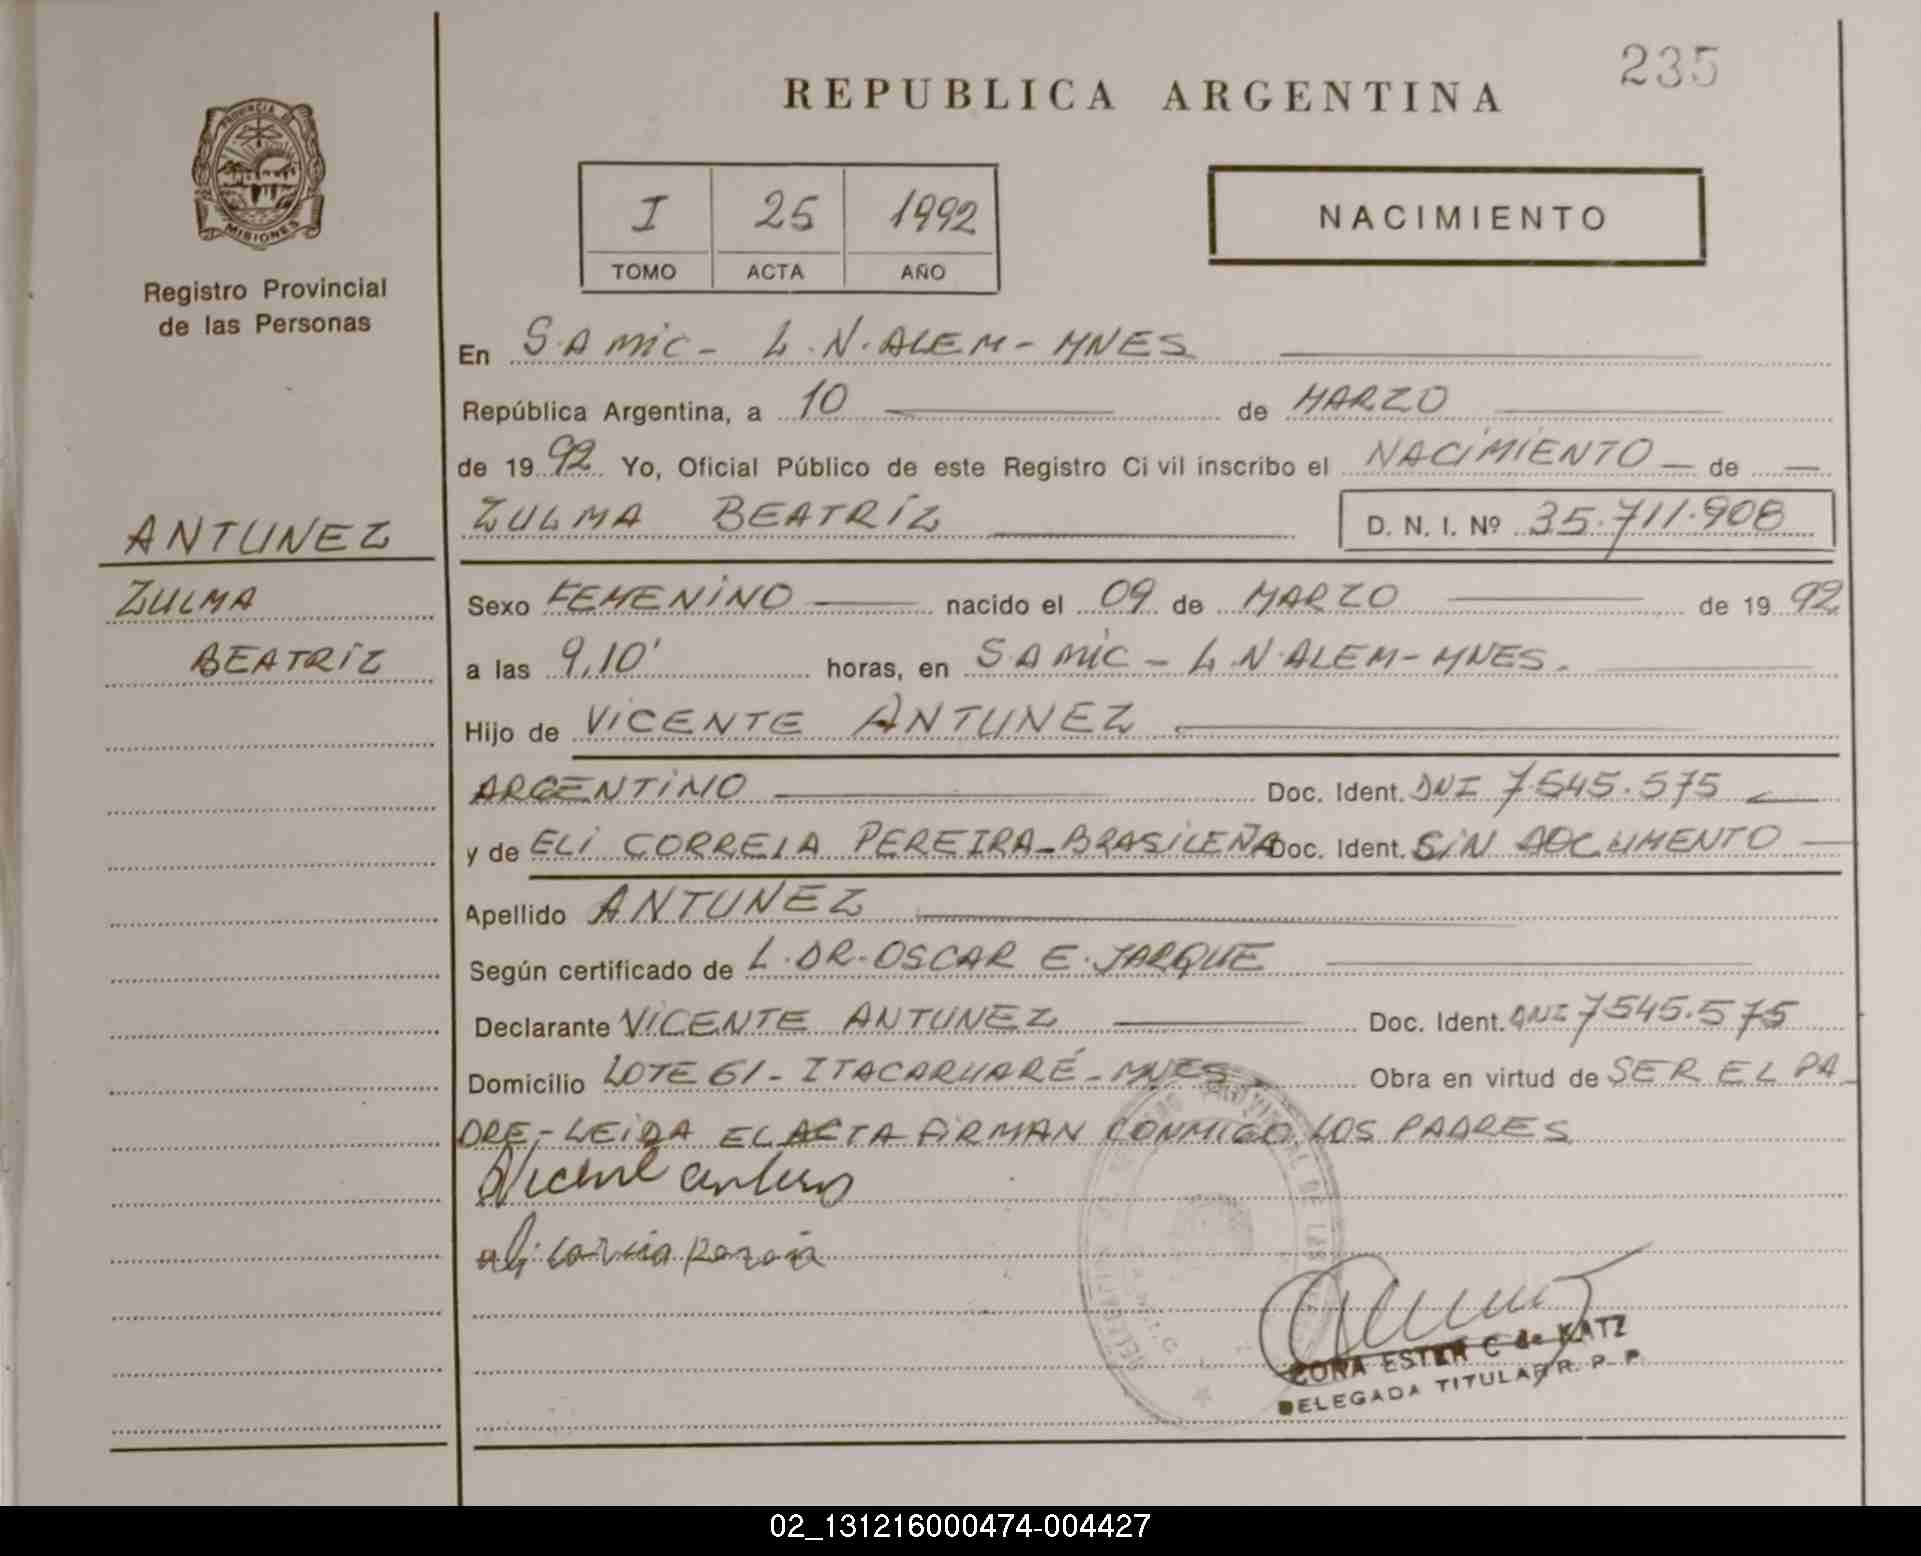 235
REPUBLICA ARGENTINA
PROVINCIA DE
MISIONES
Registro Provincial
de las Personas
I 25 1992
TOMO ACTA AÑO
NACIMIENTO
En S.A MIC - L.N.ALEM - MNES
República Argentina, a 10 de MARZO
de 19 92 Yo, Oficial Público de este Registro Civil inscribo el NACIMIENTO — de —
ZULMA BEATRIZ D. N. I. Nº 35.711.908
ANTUNEZ
ZULMA
BEATRIZ
Sexo FEMENINO nacido el 09 de MARZO de 19 92
a las 9,10' horas, en S.A MIC - L.N.ALEM - MNES.
Hijo de VICENTE ANTUNEZ
ARGENTINO Doc. Ident. DNI 7545.575
y de ELI CORREIA PEREIRA - BRASILEÑA Doc. Ident. SIN DOCUMENTO
Apellido ANTUNEZ
Según certificado de L. DR. OSCAR E. JARQUE
Declarante VICENTE ANTUNEZ Doc. Ident. DNI 7545.575
Domicilio LOTE 61 - ITACARUARÉ - MNES Obra en virtud de SER EL PA
DRE, - LEIDA EL ACTA FIRMAN CONMIGO LOS PADRES
CORA ESTER C de KATZ
DELEGADA TITULAR R. P. P.
02_131216000474-004427